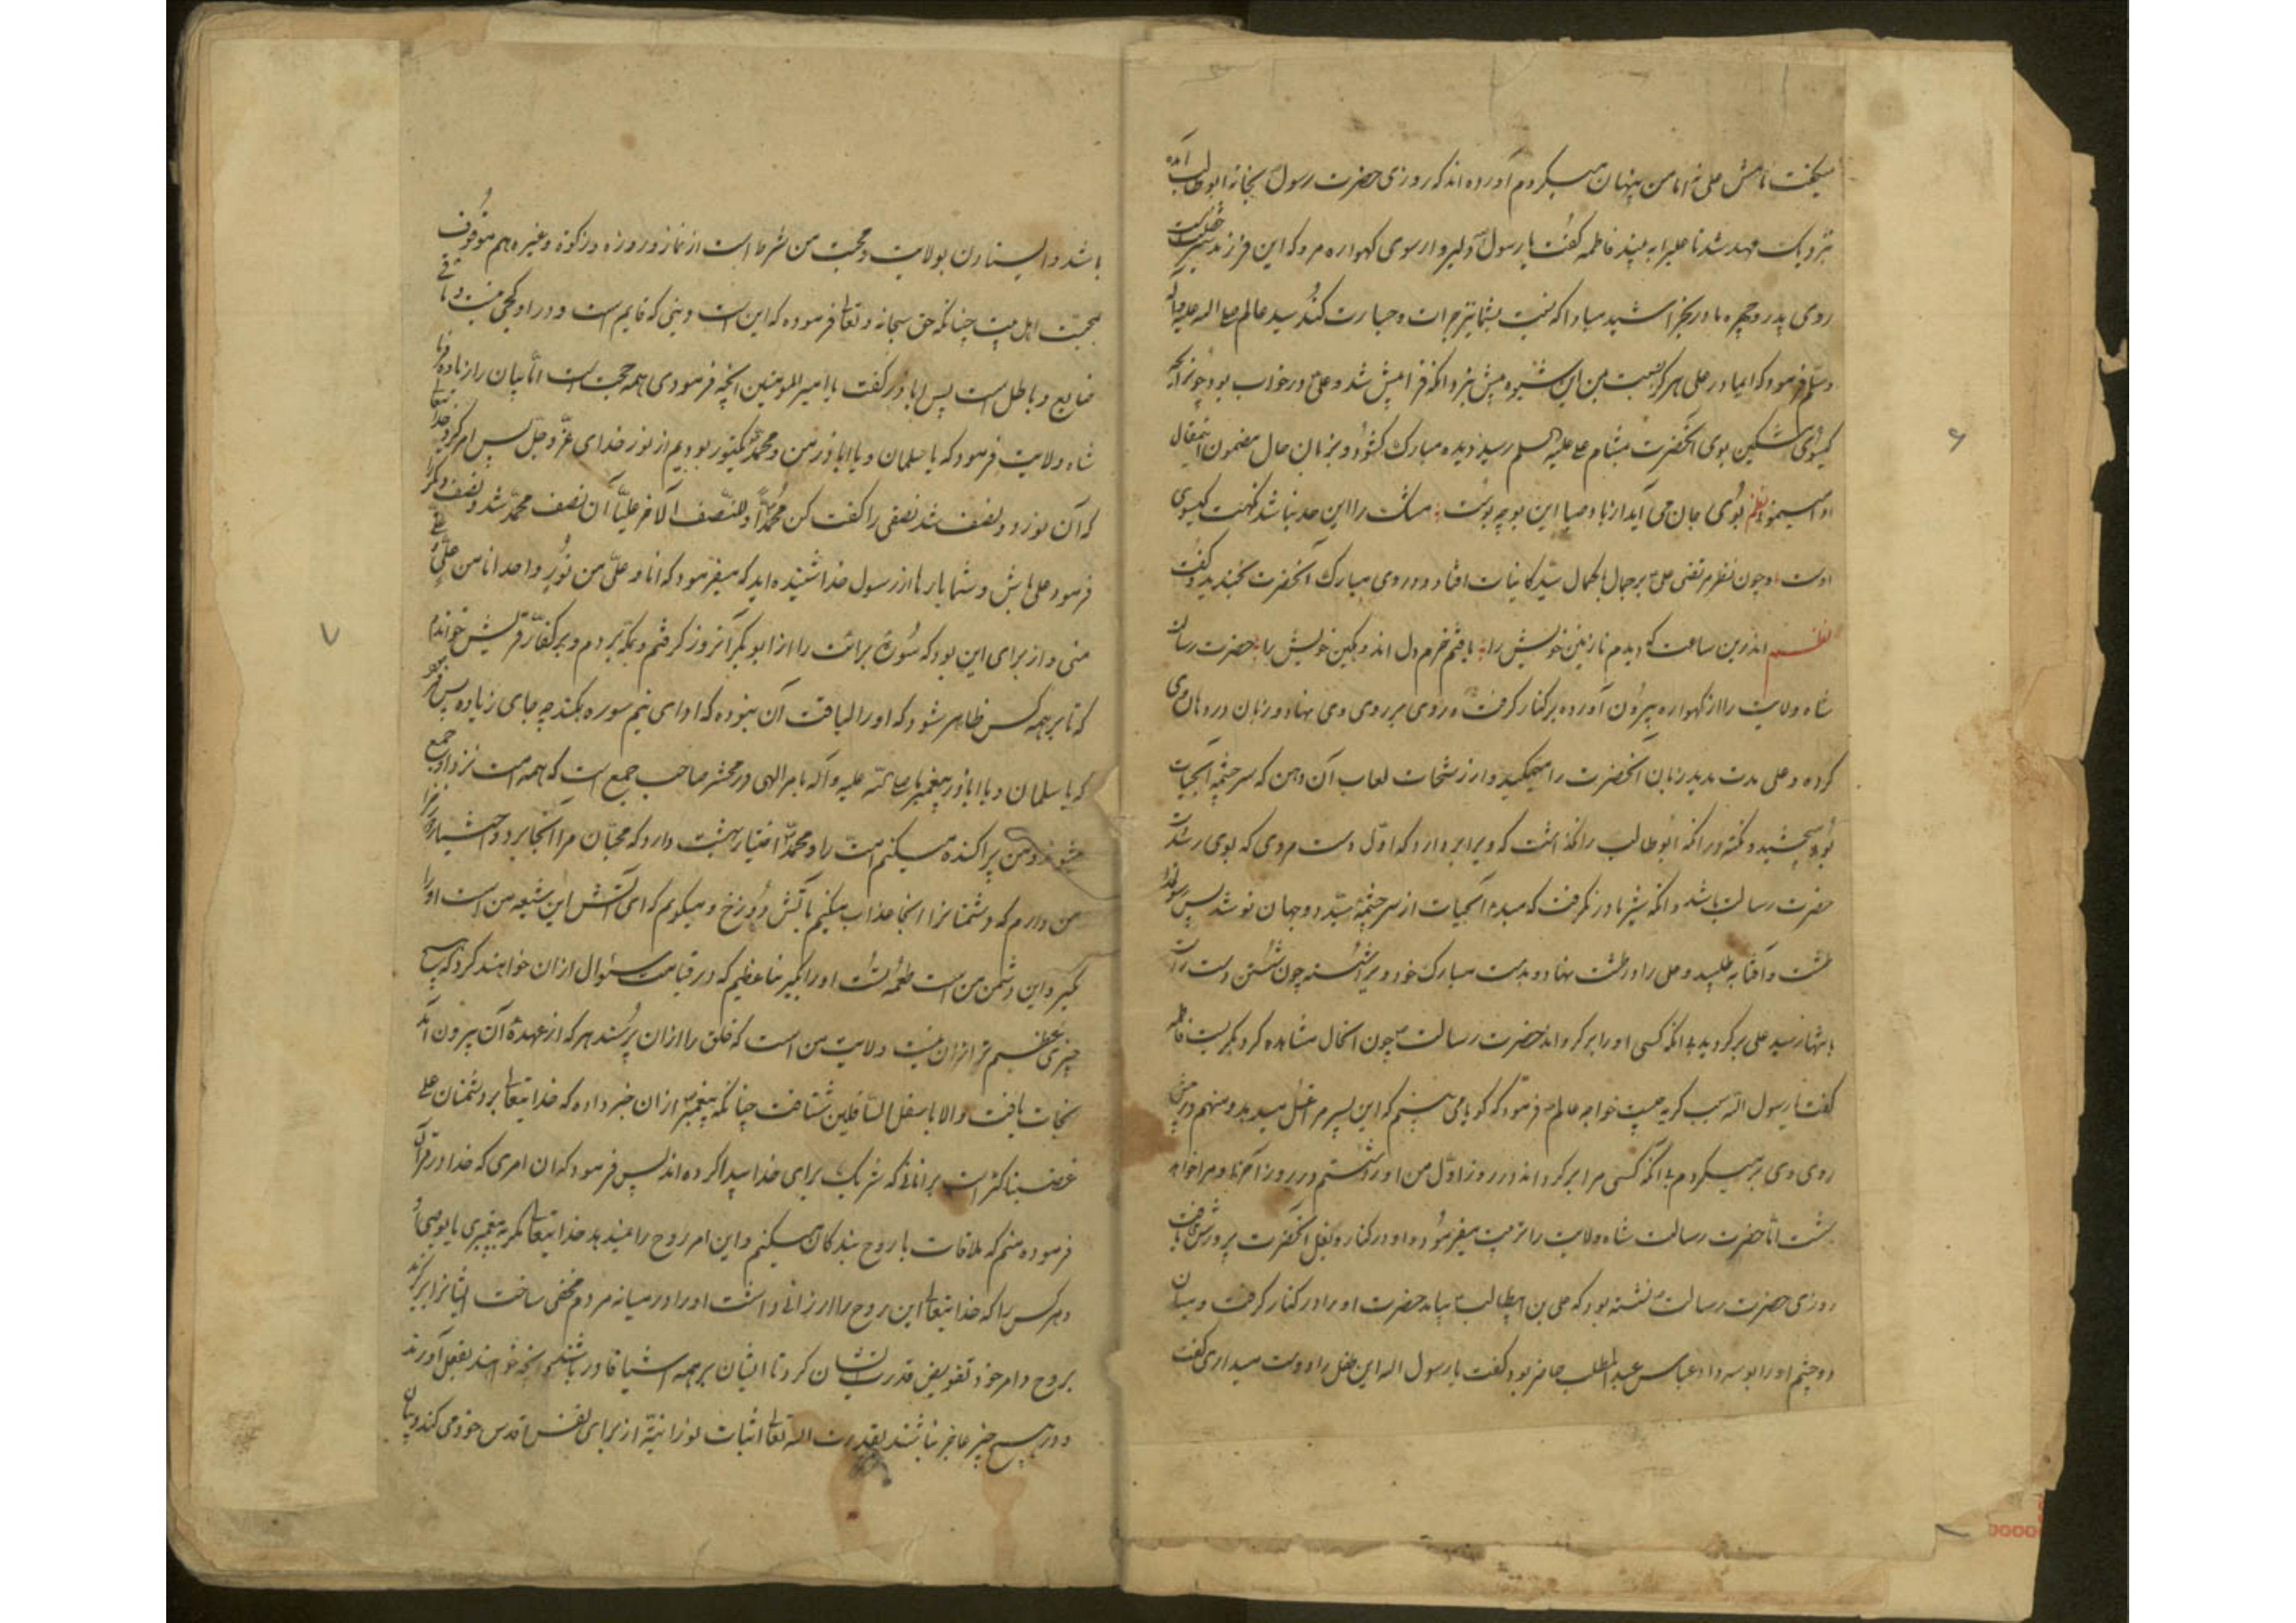 میگفت نامش علی نه اما من پنهان میکردم آورده اند که روزی حضرت رسول بخانه ابوطالب آمده
نزدیک مهد شد تا علیرا به بیند فاطمه گفت یا رسول دلیروار سوی کهواره مرو که این فرزند شیر خصلت است
روی پدر و چهره مادر بخراشید مبادا که نسبت بشما نیز جرات و جسارت کند سید عالم صلی الله علیه وآله
وسلم فرمود که ایمادر علی هرگز نسبت بمن این شیوه پیش نبرد آنکه فرا پیش شد و علی در خواب بود چون رایحه
گیسوی مشکین بوی آنحضرت بمشام علی علیه السلم رسید دیده مبارک کشود و بزبان حال مضمون اینمقال
ادا میمنود نظم بوی جان می آید از باد صبا این بو چه بوست مشک را این حد نباشد نکهت کیسوی
اوست و چون نظر مرتضی علی بر جمال باکمال سید کاینات افتاد در روی مبارک آنحضرت بخندید و گفت
نظم اندرین ساعت که دیدم نازنین خویش را یافتم خرم دل اندوهگین خویش را حضرت رسالت
شاه ولایت را از کهواره بیرون آورده بر کنار کرفت و روی بر روی وی نهاد و زبان در دهان وی
کرده و علی مدت مدید زبان آنحضرت را میمکید و از رشحات لعاب آن دهن که سرچشمه آبحیات
بود میچشید و نکته در آنکه ابوطالب را نکذاشت که ویرا بردارد که اول دست مردی که بوی رسد دست
حضرت رسالت باشد و آنکه شیر مادر نکرفت که مبدء آبحیات از سرچشمه سید دو جهان نوشد پس رسولخدا
طشت و آفتابه طلبید و علی را در طشت نهاد و بدست مبارک خود ویرا شسته چون شستن دست راست
بانتها رسید علی برکردید بی آنکه کسی او را برکرداند حضرت رسالت چون آنحال مشاهده کرد بگریست فاطمه
گفت یا رسول الله سبب کریه چیست خواجه عالم فرمود که کویا می بینم که این پسر مرا غسل میدهد و منهم در پیش
روی وی برمیکردم بی آنکه کسی مرا برکرداند در روز اول من او را شستم و در روز آخر او مرا خواهد
شست اما حضرت رسالت شاه ولایت را تربیت میفرمود و او در کنار و بغل آنحضرت پرورش می یافت
روزی حضرت رسالت نشسته بود که علی بن ابیطالب بیامد حضرت او را در کنار کرفت و میان
دو چشم او را بوسه داد عباس عبدالمطلب حاضر بود گفت یا رسول الله این طفل را دوست میداری گفت
۶
باشد و ایستادن بولایت و محبت من شرط است از نماز و روزه و زکوة و غیره هم موقوف
بمحبت اهل بیت چنانکه حق سبحانه و تعالی فرموده که این است دینی که قایم است و در او کجی نیست و باقی
ضایع و باطل است پس اباذر گفت یا امیر المومنین آنچه فرمودی همه حجت است اما بیان را زیاده فرما
شاه ولایت فرمود که یا سلمان و یا اباذر من و محمد یکنور بودیم از نور خدای عز و جل پس امر کرد خدایتعالی
که آن نور دو نصف شد نصفی را گفت کن محمدا و للنصف الآخر علیا آن نصف محمد شد و نصف دیگر را
فرمود علی باش و شما بارها از رسول خدا شنیده اید که میفرمود که انا و علی من نور واحد انا من علی و علی
منی و از برای این بود که سوره برائت را از ابوبکر آنروز کرفتم و بمکه بردم و بر کفار قریش خواندم
که تا بر همه کس ظاهر شود که او را لیاقت آن نبوده که ادای نیم سوره بکند چه جای زیاده پس فرمود
که یا سلمان و یا اباذر پیغمبر ما صلی الله علیه و آله بامر الهی در محشر صاحب جمع است که همه امت نزد او جمع
میشوند و من پراکنده میکنم امت را و محمد اختیار بهشت دارد که محبان مرا آنجا برد و اختیار دوزخ را
من دارم که دشمنانرا آنجا عذاب میکنم بآتش دوزخ و میکویم که ای آتش این شیعه من است او را
مگیر و این دشمن من است طعمه تست او را بگیر نبا عظیم که در قیامت سئوال از ان خواهند کرد که هیچ
چیزی عظیم تر از ان نیست ولایت من است که خلق را از ان پرسند هر که از عهده آن بیرون آمد
نجات یافت و الا باسفل السافلین شتافت چنانکه پیغمبر از ان خبر داده که خدایتعالی بر دشمنان علی
غضبناکتر است بر انانی که شریک برای خدا پیدا کرده اند پس فرمود که ان امری که خدا در قرآن
فرموده منم که ملاقات با روح بندکان میکنم و این امر روح را میدهد خدایتعالی مگر به پیغمبری یا بوصی او
و هر کس را که خدایتعالی این روح را ارزانی داشت او را در میانه مردم مخفی ساخت ایشانرا برکزید
بروح و امر خود تفویض قدرت ایشان کرد تا ایشان بر همه اشیا قادر باشند و آنچه خواهند بفعل آورند
و در هیچ چیز عاجز نباشند بقدرت الله تعالی اثبات نورانیة از برای نفس اقدس خود می کند و بیان
۷